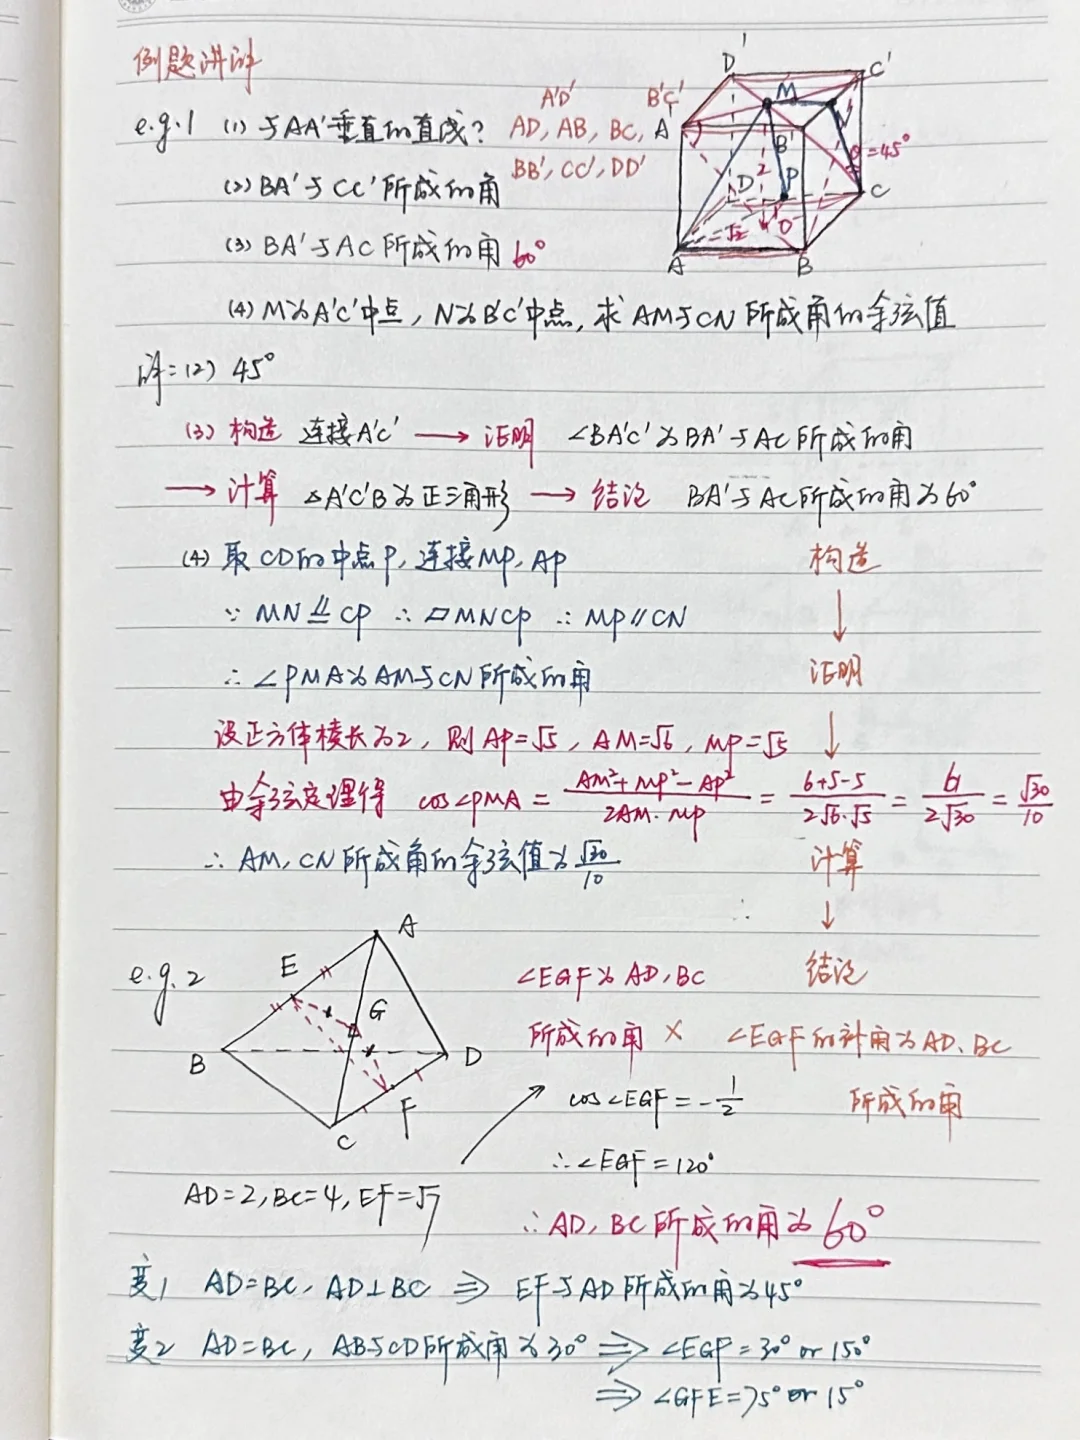 例题讲评
A'D' B'C'
e.g.1 (1) 与AA'垂直的直线? AD, AB, BC,
BB', CC', DD'
(2) BA'与CC'所成的角
(3) BA'与AC所成的角 60°
(4) M为A'C'中点, N为B'C'中点, 求AM与CN所成角的余弦值
D' C' M A' B' N θ=45° D 2 P C √2 O A B
解:(2) 45°
(3) 构造 连接A'C' → 证明 ∠BA'C'为BA'与AC所成的角
→ 计算 △A'C'B为正三角形 → 结论 BA'与AC所成的角为60°
(4) 取CD的中点P, 连接MP, AP 构造
∵ MN∥=CP ∴ ▱MNCP ∴ MP∥CN ↓
∴ ∠PMA为AM与CN所成的角 证明
设正方体棱长为2, 则AP=√5, AM=√6, MP=√5 ↓
由余弦定理得 cos∠PMA = (AM²+MP²-AP²)/(2AM·MP) = (6+5-5)/(2√6·√5) = 6/(2√30) = √30/10
∴ AM, CN所成角的余弦值为√30/10 计算
↓
e.g.2 结论
A E G B D F C
∠EGF为AD, BC
所成的角 × ∠EGF的补角为AD、BC
所成的角
cos∠EGF = -1/2
∴∠EGF = 120°
AD=2, BC=4, EF=√7
∴ AD, BC所成的角为60°
变1 AD=BC, AD⊥BC ⇒ EF与AD所成的角为45°
变2 AD=BC, AB与CD所成角为30° ⇒ ∠EGF=30° or 150°
⇒ ∠GFE=75° or 15°